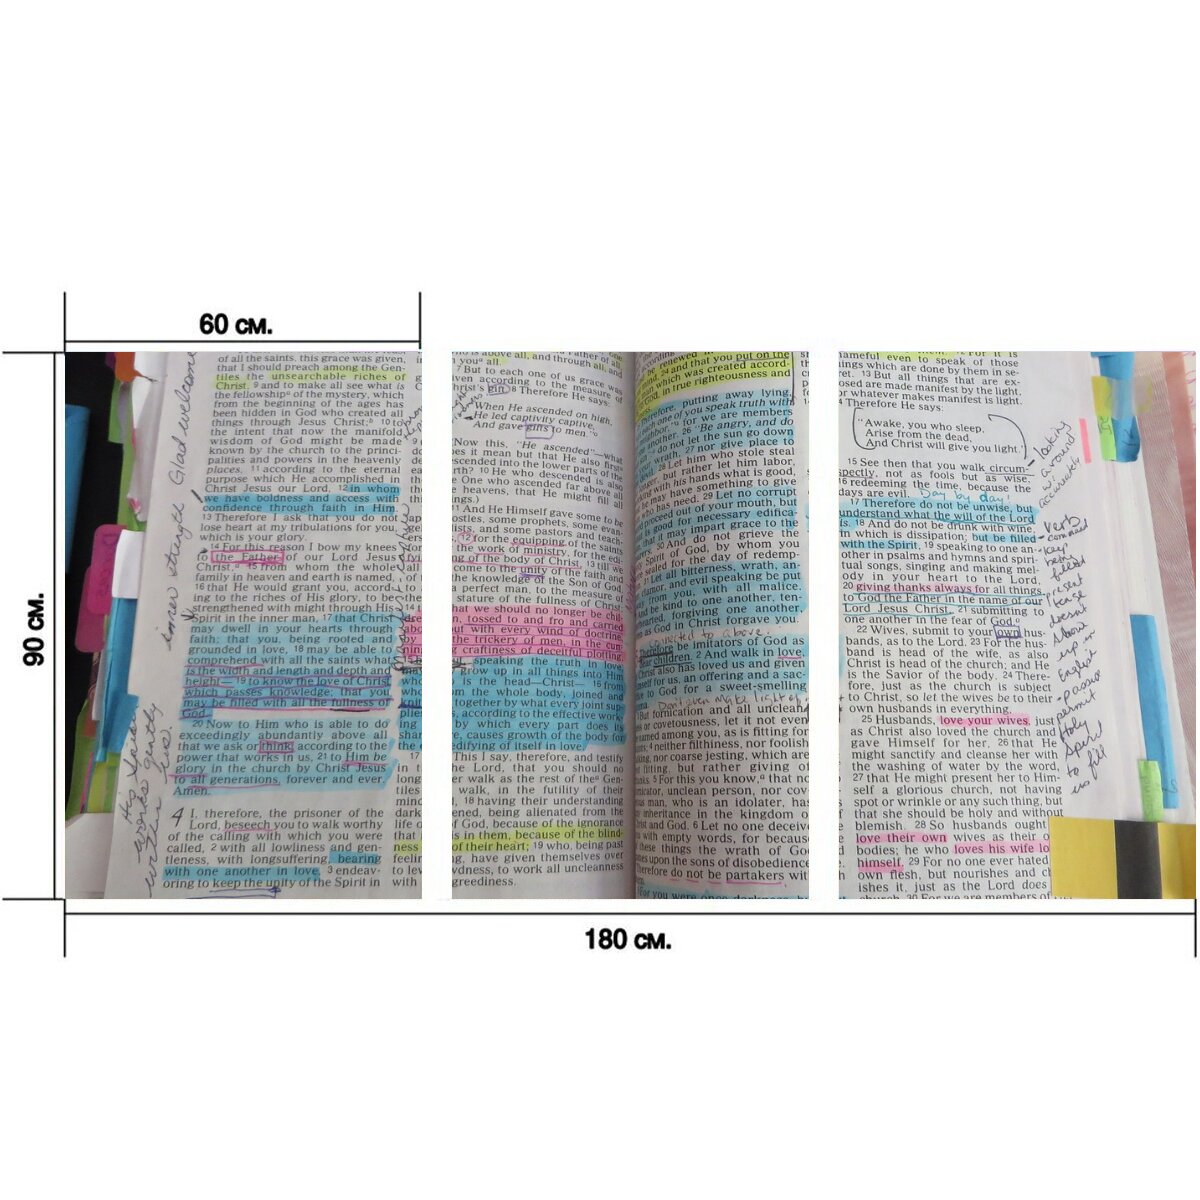 60 см.
90 см.
180 см.
of all the saints, this grace was given,
that I should preach among the Gen-
tiles the unsearchable riches of
Christ, 9 and to make all see what is
the fellowship of the mystery, which
from the beginning of the ages has
been hidden in God who created all
things through Jesus Christ; 10 to
the intent that now the manifold
wisdom of God might be made
known by the church to the princi-
palities and powers in the heavenly
places, 11 according to the eternal
purpose which He accomplished in
Christ Jesus our Lord, 12 in whom
we have boldness and access with
confidence through faith in Him.
13 Therefore I ask that you do not
lose heart at my tribulations for you,
which is your glory.
14 For this reason I bow my knees
to the Father of our Lord Jesus
Christ, 15 from whom the whole
family in heaven and earth is named,
16 that He would grant you, accord-
ing to the riches of His glory, to be
strengthened with might through His
Spirit in the inner man, 17 that Christ
may dwell in your hearts through
faith; that you, being rooted and
grounded in love, 18 may be able to
comprehend with all the saints what
is the width and length and depth and
height— 19 to know the love of Christ
which passes knowledge; that you
may be filled with all the fullness of
God.
20 Now to Him who is able to do
exceedingly abundantly above all
that we ask or think, according to the
power that works in us, 21 to Him be
glory in the church by Christ Jesus
to all generations, forever and ever.
Amen.
4 I, therefore, the prisoner of the
Lord, beseech you to walk worthy
of the calling with which you were
called, 2 with all lowliness and gen-
tleness, with longsuffering, bearing
with one another in love, 3 endeav-
oring to keep the unity of the Spirit in
inner strength Glad welcome
works gently
within us
is above all, and through all, and
you all.
7 But to each one of us grace was
given according to the measure of
Christ's gift. 8 Therefore He says:
"When He ascended on high,
He led captivity captive,
And gave gifts to men."
(Now this, "He ascended"—what
does it mean but that He also first
descended into the lower parts of the
earth? 10 He who descended is also
One who ascended far above all
the heavens, that He might fill all
things.)
11 And He Himself gave some to be
apostles, some prophets, some evan-
gelists, and some pastors and teach-
12 for the equipping of the saints
the work of ministry, for the edi-
fying of the body of Christ, 13 till we
come to the unity of the faith and
the knowledge of the Son of God,
a perfect man, to the measure of
stature of the fullness of Christ;
14 that we should no longer be chil-
dren, tossed to and fro and carried
about with every wind of doctrine,
by the trickery of men, in the cun-
ning craftiness of deceitful plotting,
speaking the truth in love,
may grow up in all things into Him
who is the head—Christ— 16 from
whom the whole body, joined and
together by what every joint sup-
plies, according to the effective work-
ing by which every part does its
share, causes growth of the body for
the edifying of itself in love.
17 This I say, therefore, and testify
the Lord, that you should no
longer walk as the rest of the Gen-
tiles walk, in the futility of their
mind, 18 having their understanding
darkened, being alienated from the
life of God, because of the ignorance
that is in them, because of the blind-
ness of their heart; 19 who, being past
feeling, have given themselves over
to lewdness, to work all uncleanness
with greediness.
be renewed
mind, 24 and that you put on the
man which was created accord-
to God, in true righteousness and
Therefore, putting away lying,
each one of you speak truth with
neighbor," for we are members
26 "Be angry, and do
do not let the sun go down
27 nor give place to
28 Let him who stole steal
longer, but rather let him labor,
working with his hands what is good,
may have something to give
who has need. 29 Let no corrupt
proceed out of your mouth, but
is good for necessary edifica-
that it may impart grace to the
30 And do not grieve the
Spirit of God, by whom you
were sealed for the day of redemp-
31 Let all bitterness, wrath, an-
clamor, and evil speaking be put
away from you, with all malice.
And be kind to one another, ten-
forgiving one another,
as God in Christ forgave you.
connected to above.
Therefore be imitators of God as
dear children. 2 And walk in love,
Christ also has loved us and given
Himself for us, an offering and a sac-
to God for a sweet-smelling
Don't even make light of
But fornication and all unclean-
or covetousness, let it not even
named among you, as is fitting for
4 neither filthiness, nor foolish
nor coarse jesting, which are
fitting, but rather giving of
thanks. 5 For this you know, that no
fornicator, unclean person, nor cov-
etous man, who is an idolater, has
inheritance in the kingdom of
Christ and God. 6 Let no one deceive
with empty words, for because
these things the wrath of God
comes upon the sons of disobedience.
Therefore do not be partakers with
For you were once darkness, but
shameful even to speak of those
things which are done by them in se-
cret. 13 But all things that are ex-
posed are made manifest by the light,
for whatever makes manifest is light.
14 Therefore He says:
"Awake, you who sleep,
Arise from the dead,
And Christ will give you light."
15 See then that you walk circum-
spectly, not as fools but as wise,
16 redeeming the time, because the
days are evil. Day by day!
17 Therefore do not be unwise, but
understand what the will of the Lord
is. 18 And do not be drunk with wine,
in which is dissipation; but be filled
with the Spirit, 19 speaking to one an-
other in psalms and hymns and spiri-
tual songs, singing and making mel-
ody in your heart to the Lord,
20 giving thanks always for all things
to God the Father in the name of our
Lord Jesus Christ, 21 submitting to
one another in the fear of God.
22 Wives, submit to your own hus-
bands, as to the Lord. 23 For the hus-
band is head of the wife, as also
Christ is head of the church; and He
is the Savior of the body. 24 There-
fore, just as the church is subject
to Christ, so let the wives be to their
own husbands in everything.
25 Husbands, love your wives, just
as Christ also loved the church and
gave Himself for her, 26 that He
might sanctify and cleanse her with
the washing of water by the word,
27 that He might present her to Him-
self a glorious church, not having
spot or wrinkle or any such thing, but
that she should be holy and without
blemish. 28 So husbands ought
love their own wives as their o
bodies; he who loves his wife lo
himself. 29 For no one ever hated
own flesh, but nourishes and ch
ishes it, just as the Lord does
church. 30 For we are members of
looking
around
w/
accurately
- verb
- command
keep
being
filled
present
tense
doesn't
show
up in
English
- passive
permit
Holy
Spirit
to fill
us